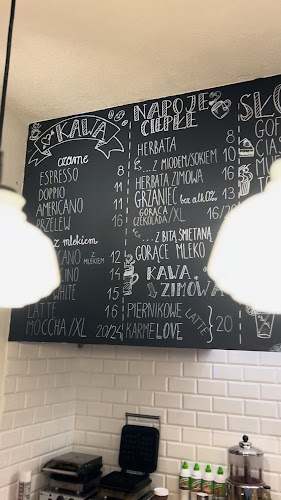 KAWA
czarne
ESPRESSO 8
DOPPIO 11
AMERICANO 11
PRZELEW 16
z mlekiem
CANO Z MLEKIEM 12
CINO 14
WHITE 15
LATTE 16
MOCCHA/XL 20/24
NAPOJE CIEPŁE
HERBATA 8
...Z MIODEM/SOKIEM 10
HERBATA ZIMOWA 16
GRZANIEC bez alk.0%
GORĄCA CZEKOLADA/XL 16/20
...Z BITĄ ŚMIETANĄ
GORĄCE MLEKO
KAWA ZIMOWA
PIERNIKOWE LATTE 20
KARMELOVE
SŁO
GOF
CIAS